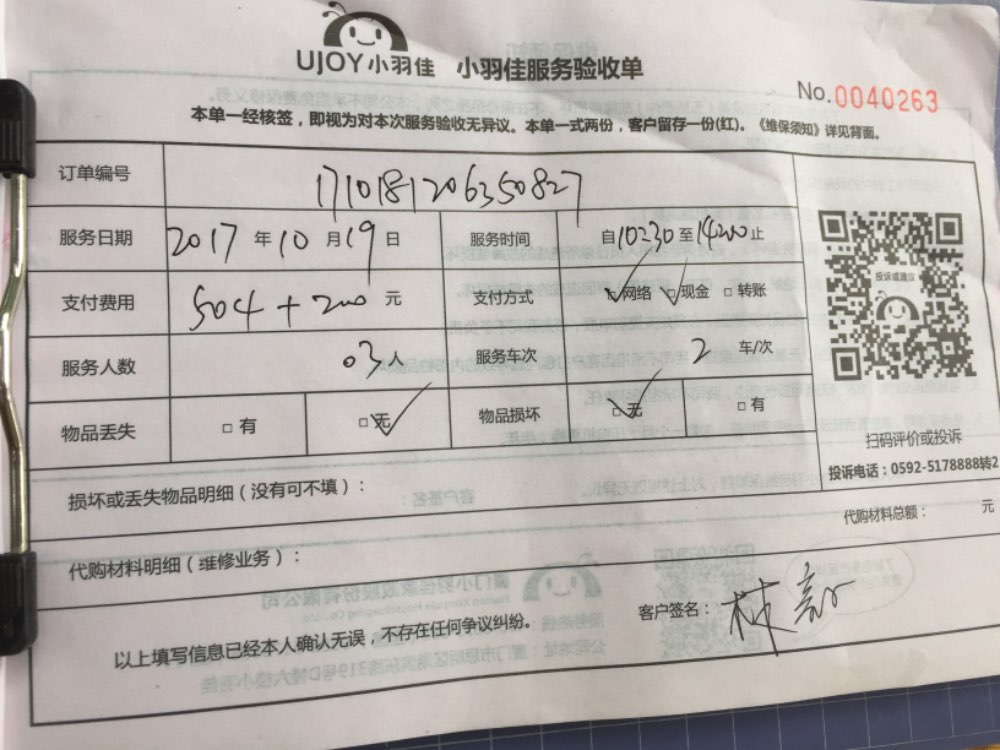 UJOY小羽佳 小羽佳服务验收单
No.0040263
本单一经核签，即视为对本次服务验收无异议。本单一式两份，客户留存一份(红)。《维保须知》详见背面。
订单编号 1710181206350827
服务日期 2017 年 10 月 19 日 服务时间 自10:30至14:00止
支付费用 504 + 200 元 支付方式 网络 现金 转账
服务人数 03 人 服务车次 2 车/次
物品丢失 有 无 物品损坏 无 有
投诉或建议
扫码评价或投诉
投诉电话：0592-5178888转2
损坏或丢失物品明细（没有可不填）：
代购材料明细（维修业务）： 代购材料总额： 元
以上填写信息已经本人确认无误，不存在任何争议纠纷。 客户签名：林